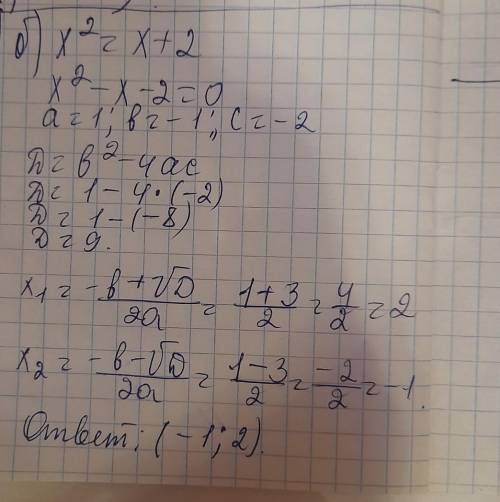 б) x² = x + 2
x² - x - 2 = 0
a = 1; в = -1; c = -2
D = в² - 4ac
D = 1 - 4 · (-2)
D = 1 - (-8)
D = 9.
x₁ = -в + √D / 2a = 1 + 3 / 2 = 4 / 2 = 2
x₂ = -в - √D / 2a = 1 - 3 / 2 = -2 / 2 = -1.
Ответ: (-1; 2).